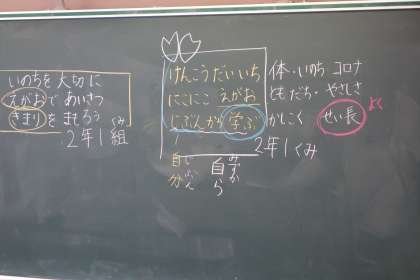 いのちを大切に
えがおであいさつ
きまりをまもろう
２年１組
くみ
けんこうだいいち
にこにこ えがお
じぶんから 学ぶ
体・いのち コロナ
ともだち・やさしさ
かしこく せい長
２年１くみ
自分
じぶん
自ら
みずか